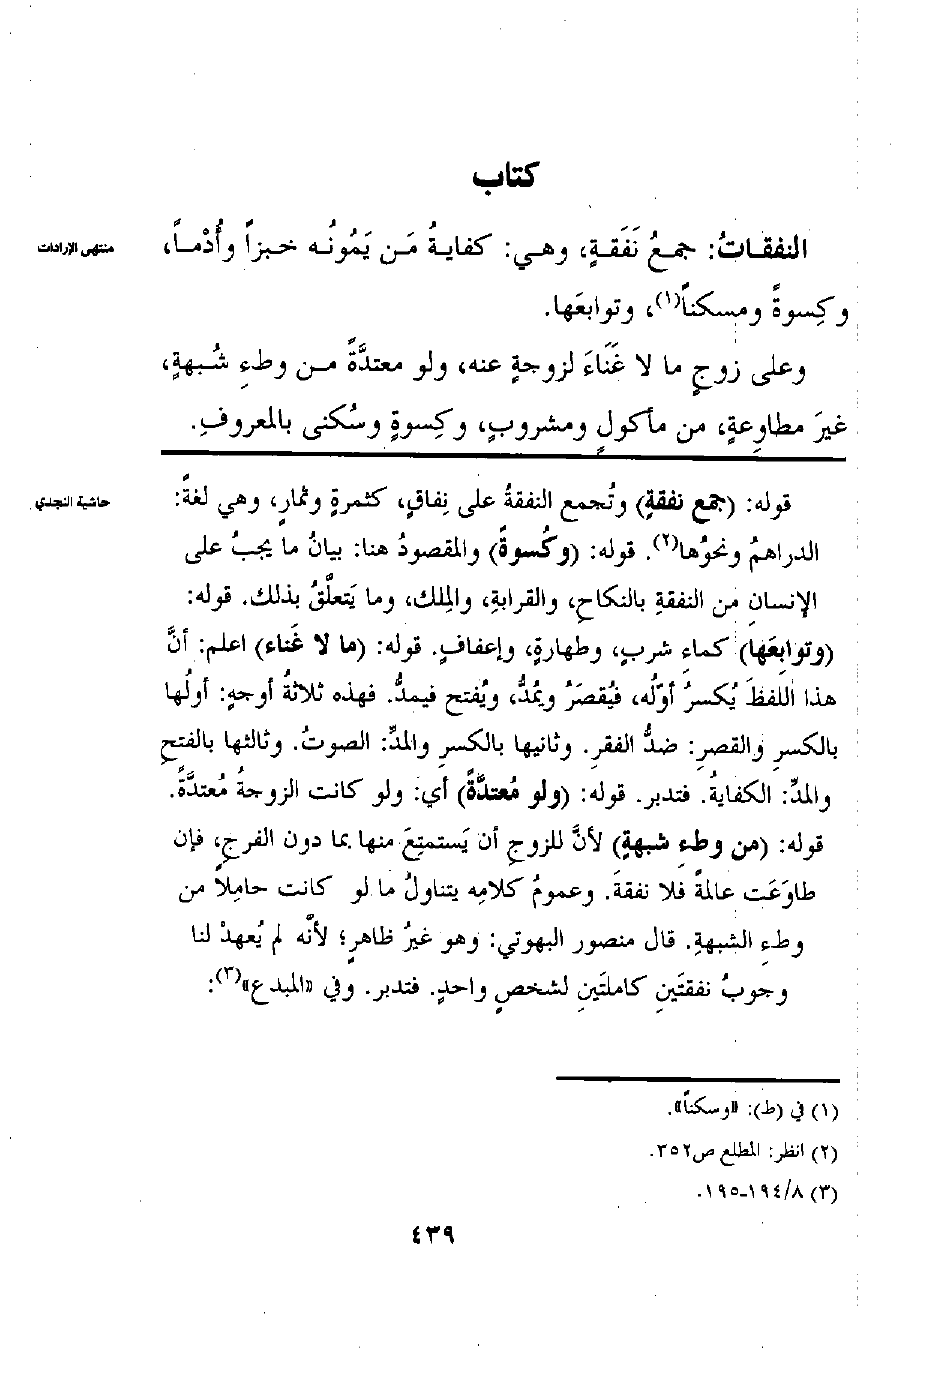 كتاب
منتهى الإرادات
النفقـاتُ: جمعُ نَفَقـةٍ، وهـي: كفايـةُ مَـن يَمُونُـه خـبزاً وأُدْمـاً،
وكِسوةً ومسكناً(١)، وتوابعَها.
وعلى زوجٍ ما لا غَنَاءَ لزوجةٍ عنه، ولو معتدَّةً مـن وطءِ شُبهةٍ،
غيرَ مطاوِعةٍ، من مأكولٍ ومشروبٍ، وكِسوةٍ وسُكنى بالمعروفِ.
حاشية النجدي
قوله: (جمع نفقةٍ) وتُجمع النفقةُ على نِفاقٍ، كثمرةٍ وثمارٍ، وهي لغةً:
الدراهمُ ونحوُها(٢). قوله: (وكُسوةً) والمقصودُ هنا: بيانُ ما يجبُ على
الإنسانِ من النفقةِ بالنكاحِ، والقرابةِ، والمِلك، وما يَتعلَّقُ بذلك. قوله:
(وتوابِعَها) كماءِ شربٍ، وطهارةٍ، وإعفافٍ. قوله: (ما لا غَناء) اعلم: أنَّ
هذا اللفظَ يُكسرُ أوّلُه، فيُقصَرُ ويُمدُّ، ويُفتح فيمدُّ. فهذه ثلاثةُ أوجهٍ: أولُها
بالكسرِ والقصرِ: ضدُّ الفقرِ. وثانيها بالكسرِ والمدِّ: الصوتُ. وثالثها بالفتحِ
والمدِّ: الكفايةُ. فتدبر. قوله: (ولو مُعتدَّةً) أي: ولو كانت الزوجةُ مُعتدَّةً.
قوله: (من وطءِ شبهةٍ) لأنَّ للزوجِ أن يَستمتِعَ منها بما دون الفرجِ، فإن
طاوَعَت عالمةً فلا نفقةَ. وعمومُ كلامِه يتناولُ ما لو كانت حاملاً من
وطءِ الشبهةِ. قال منصور البهوتي: وهو غيرُ ظاهرٍ؛ لأنَّه لم يُعهدْ لنا
وجوبُ نفقتَينِ كاملتَينِ لشخصٍ واحدٍ. فتدبر. وفي «المبدع»(٣):
(١) في (ط): «وسكناً».
(٢) انظر: المطلع ص٣٥٢.
(٣) ٨/١٩٤-١٩٥.
٤٣٩